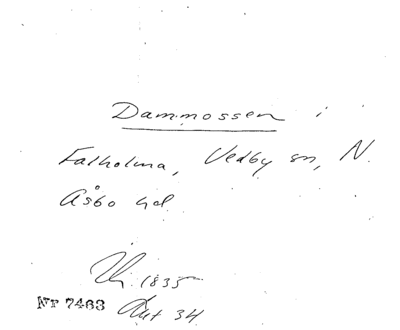 Dammossen i
Falholma, Vedby sn, N.
Åsbo hd
1835
Nr 7463 Akt 34